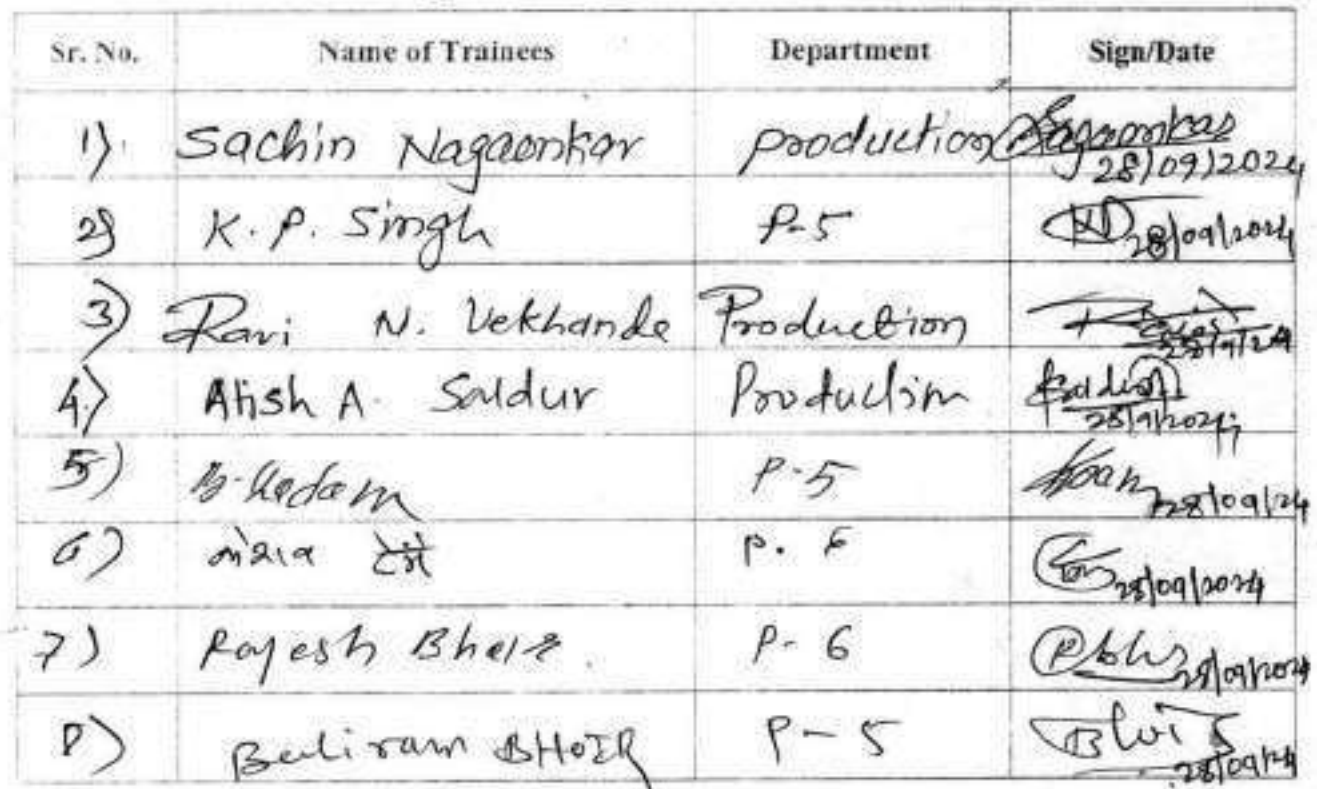 Sr. No. Name of Trainees Department Sign/Date
1). Sachin Nagaonkar production Nagaonkar 28/09/2024
2) K. P. Singh P-5 28/09/2024
3) Ravi N. Vekhande Production 28/9/24
4.) Atish A. Saldur Production Saldur 28/9/2024
5) B. Kadam P-5 28/09/24
6) P. 6 28/09/2024
7) Rajesh Bhoir P-6 28/09/2024
8) Baliram BHOIR P-5 28/09/24